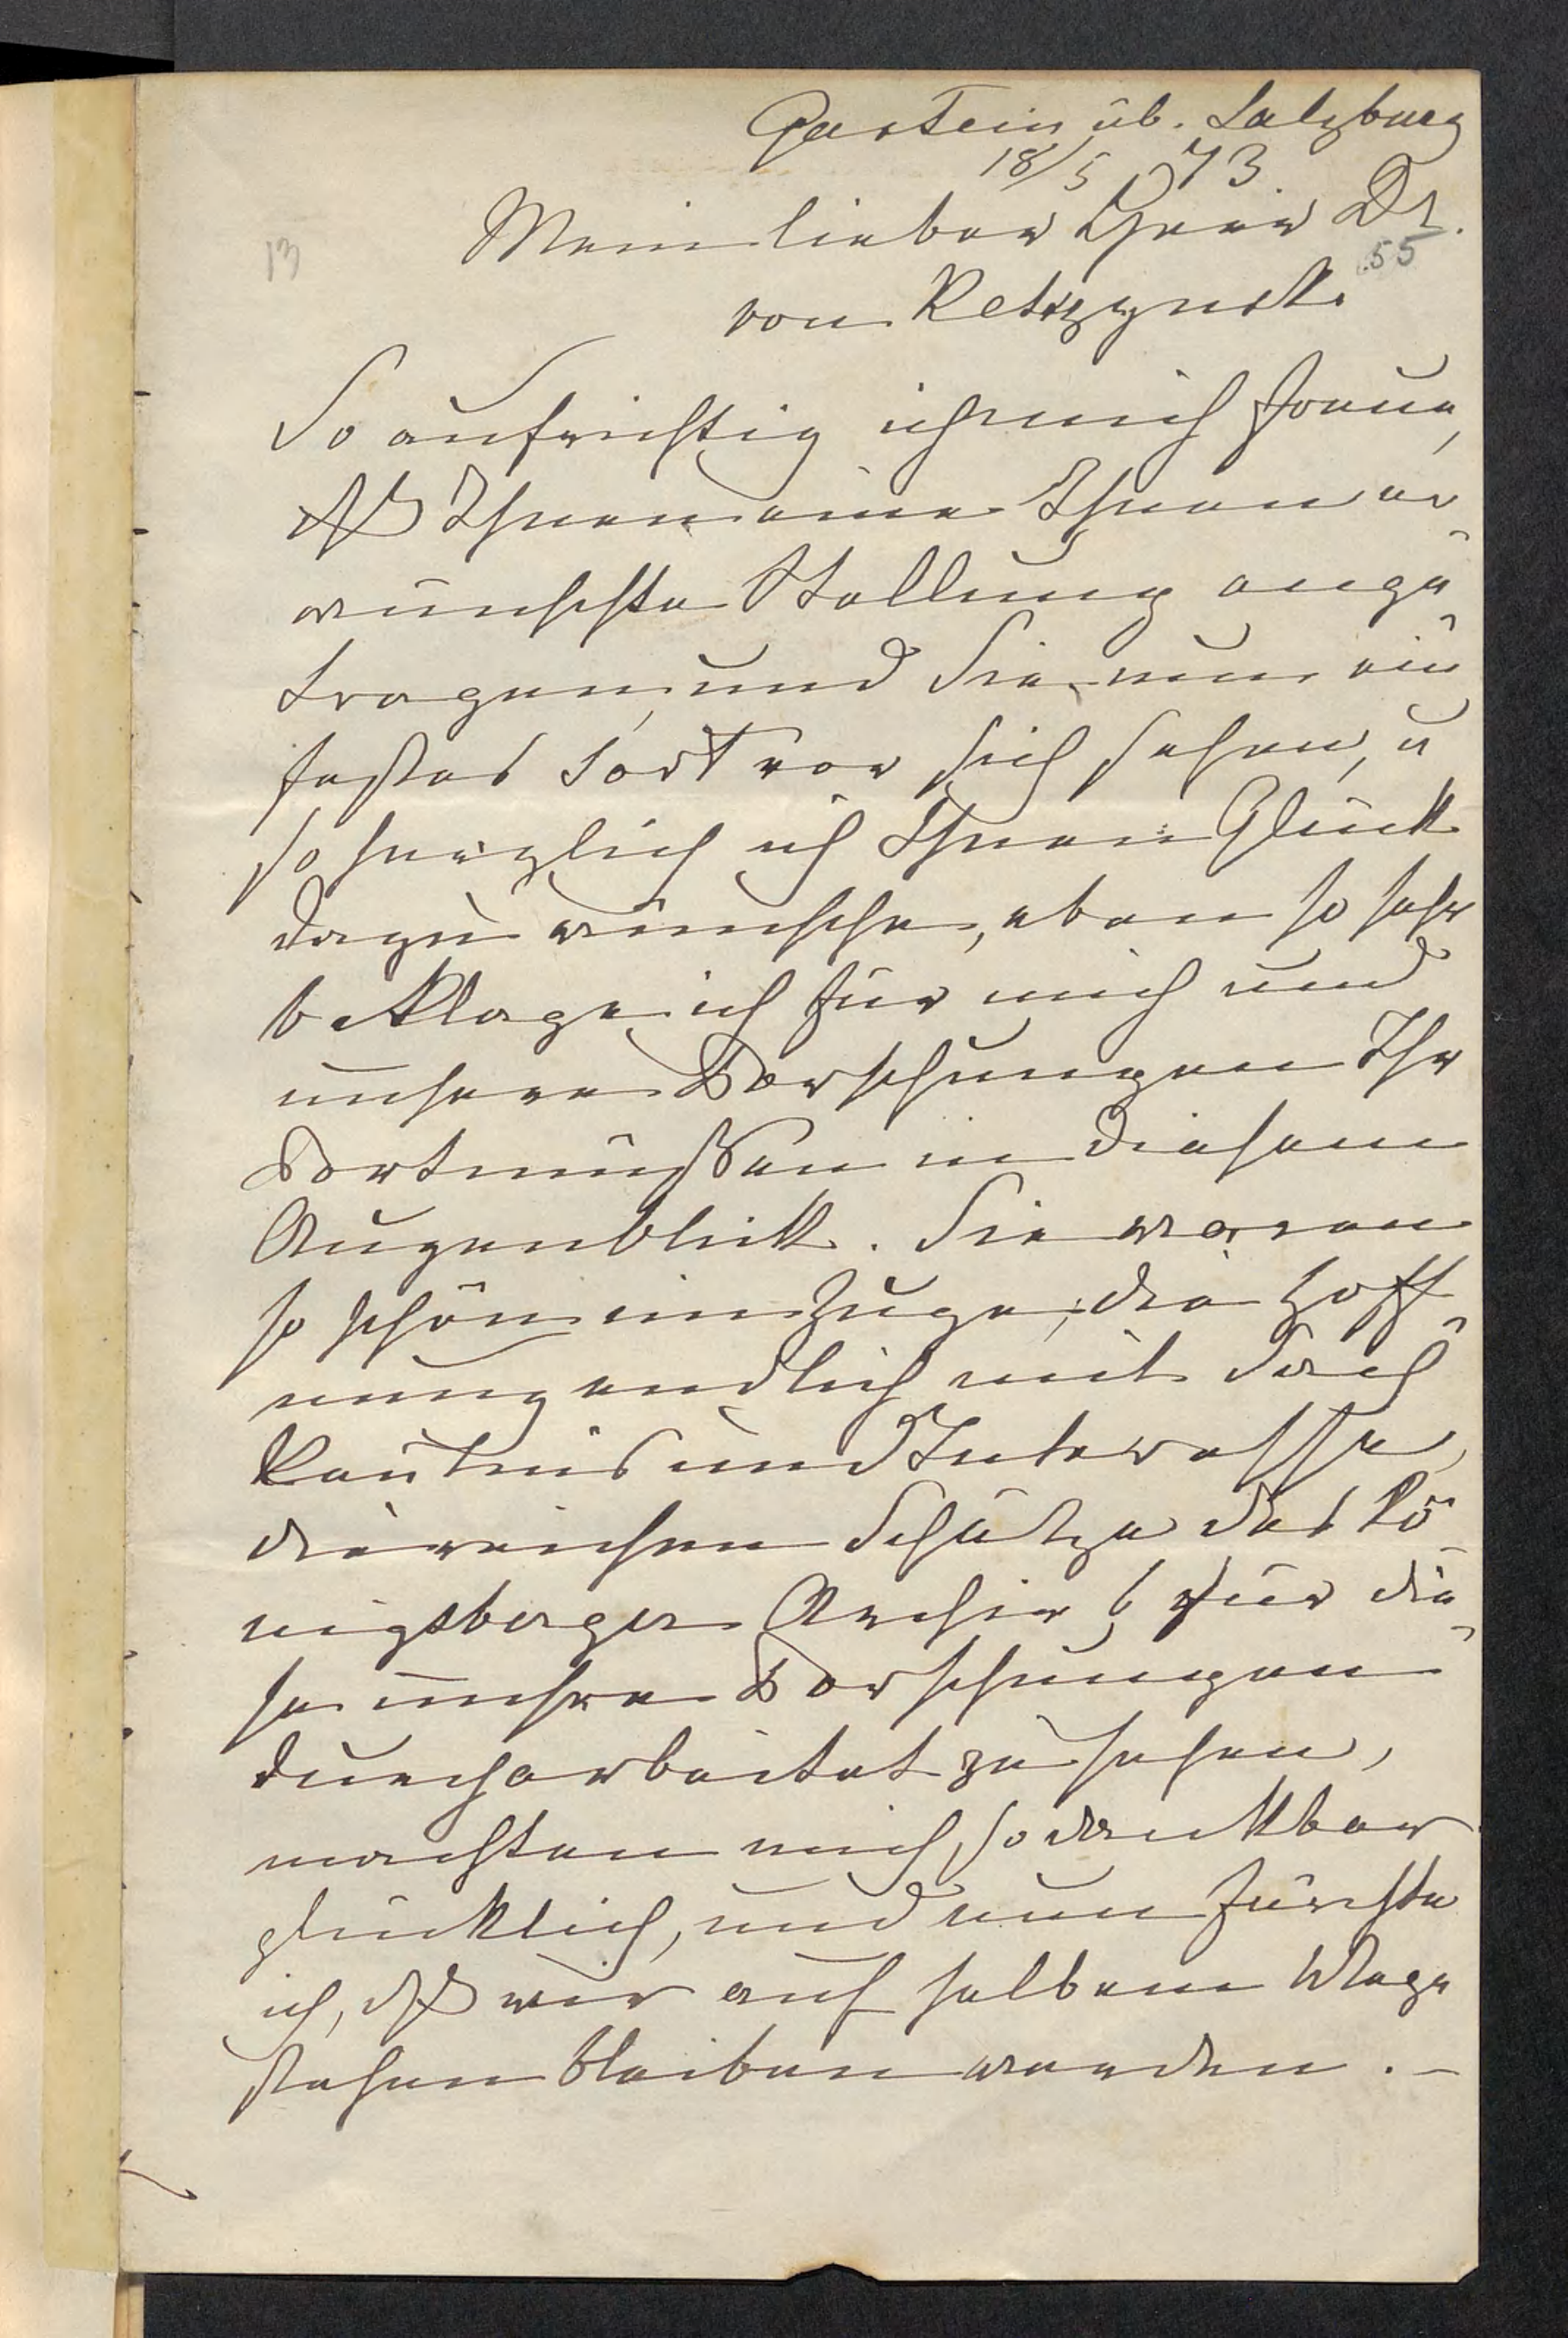 Gastein üb. Salzburg
18/5 73.
Mein lieber Herr Dr.
13
55
von Kętrzyński
So aufrichtig ich mich freue,
dß Ihnen eine Ihnen er-
wünschte Stellung ange-
tragen, und Sie nun ein
festes dort vor sich sehen, u
so herzlich ich Ihnen Glück
dazu wünsche, eben so sehr
beklage ich für mich und
unsere Forschungen Ihr
Fortmüßen in diesem
Augenblick. Sie waren
so schön im Zuge, die Hoff-
nung endlich mit Sach
kentnis und Interesse,
die reichen Schätze des Kö-
nigsberger Archivs für die-
se unsere Forschungen
durcharbeitet zu sehen,
machten mich so dankbar
glücklich, und nun fürchte
ich, dß wir auf halbem Wege
stehen bleiben werden. –